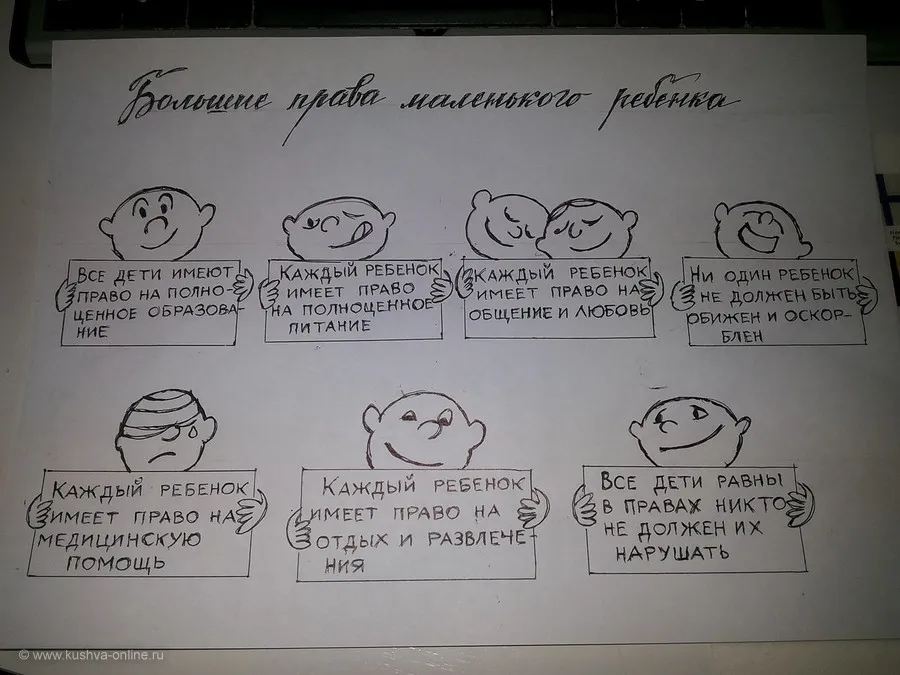 Большие права маленького ребёнка
Все дети имеют
право на полно-
ценное образова-
ние
Каждый ребенок
имеет право
на полноценное
питание
Каждый ребенок
имеет право на
общение и любовь
Ни один ребенок
не должен быть
обижен и оскор-
блен
Каждый ребенок
имеет право на
медицинскую
помощь
Каждый ребенок
имеет право на
отдых и развлече-
ния
Все дети равны
в правах никто
не должен их
нарушать
© www.kushva-online.ru